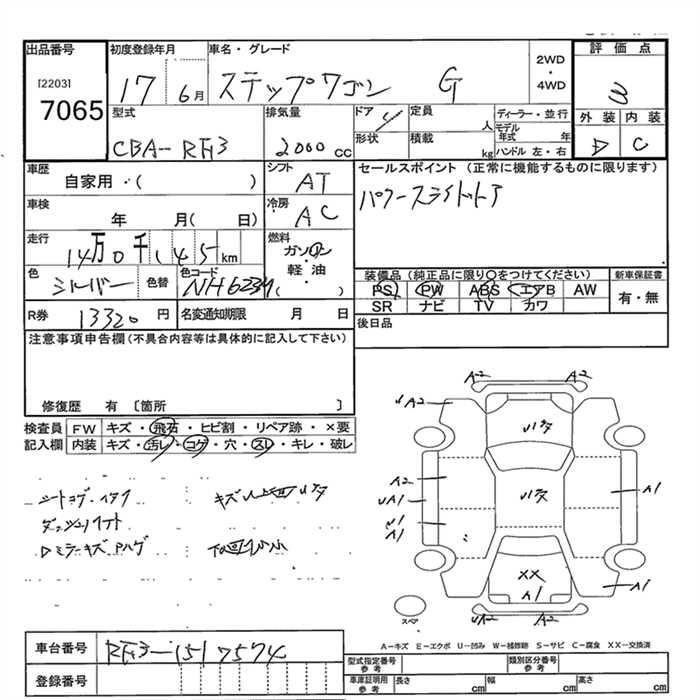 出品番号 初度登録年月 車名・グレード 2WD・4WD 評価点
[2203] 7065 17 6月 ステップワゴン G 3
型式 排気量 ドア 定員 人 ディーラー・並行 外装 内装
CBA-RF3 2000 cc 形状 積載 kg モデル年式 年 ハンドル 左・右 D C
車歴 シフト セールスポイント (正常に機能するものに限ります)
自家用・( ) AT パワースライドドア
車検 年 月( 日) 冷房 AC
走行 14万0千145km 燃料 ガソリン・軽・油・( )
色 シルバー 色替 色コード NH623M 装備品 (純正品に限り○をつけてください) 新車保証書
PS PW ABS エアB AW 有・無
SR ナビ TV カワ
R券 13320 円 名変通知期限 月 日 後日品
注意事項申告欄(不具合内容等は具体的に記入して下さい)
修復歴 有 〔箇所 〕
検査員記入欄 FW キズ・飛石・ヒビ割・リペア跡・×要
内装 キズ・汚レ・コゲ・穴・スレ・キレ・破レ
シートコゲ・イタミ
ダッシュリフト
ロミラーキズハゲ
A2 A2
UA2 A2
A2
UA1
U1
A1
A1
XX
A1
A1
A2 A2
スペア
A-キズ E-エクボ U-凹み W-補修跡 S-サビ C-腐食 XX-交換済
車台番号 RF3-1517574 型式指定番号 参考 類別区分番号 参考
登録番号 車庫証明用 参考 長さ cm 幅 cm 高さ cm